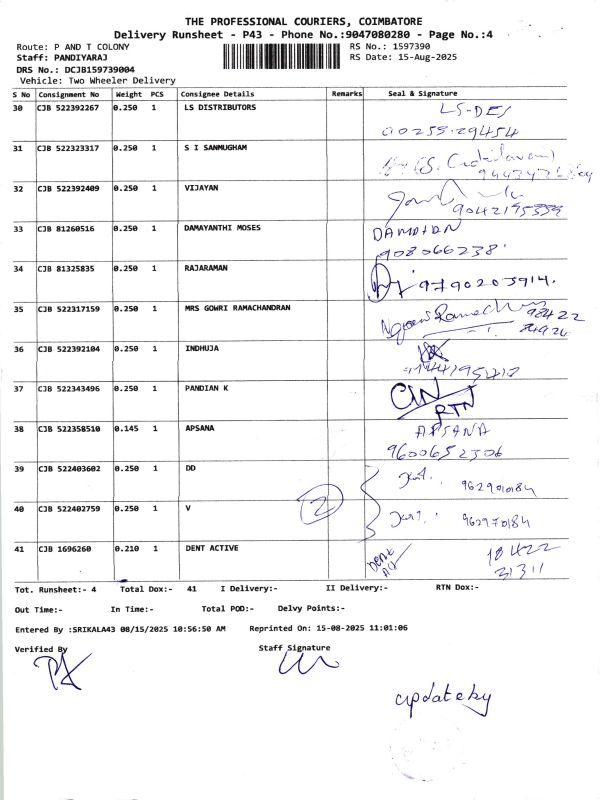 THE PROFESSIONAL COURIERS, COIMBATORE
Delivery Runsheet - P43 - Phone No.:9047080280 - Page No.:4
Route: P AND T COLONY
RS No.: 1597390
Staff: PANDIYARAJ
RS Date: 15-Aug-2025
DRS No.: DCJB159739004
Vehicle: Two Wheeler Delivery
S No Consignment No Weight PCS Consignee Details Remarks Seal & Signature
30 CJB 522392267 0.250 1 LS DISTRIBUTORS LS-DES
00255-29454
31 CJB 522323317 0.250 1 S I SANMUGHAM
32 CJB 522392409 0.250 1 VIJAYAN
9042195339
33 CJB 81260516 0.250 1 DAMAYANTHI MOSES
908066238
34 CJB 81325835 0.250 1 RAJARAMAN 9790203914.
35 CJB 522317159 0.250 1 MRS GOWRI RAMACHANDRAN 98422
36 CJB 522392104 0.250 1 INDHUJA
37 CJB 522343496 0.250 1 PANDIAN K
RTN
38 CJB 522358510 0.145 1 APSANA APSANA
9600652306
39 CJB 522403602 0.250 1 DD
2
40 CJB 522402759 0.250 1 V 962970184
41 CJB 1696260 0.210 1 DENT ACTIVE DENT 98422
31311
Tot. Runsheet:- 4 Total Dox:- 41 I Delivery:- II Delivery:- RTN Dox:-
Out Time:- In Time:- Total POD:- Delvy Points:-
Entered By :SRIKALA43 08/15/2025 10:56:50 AM Reprinted On: 15-08-2025 11:01:06
Verified By Staff Signature
update by